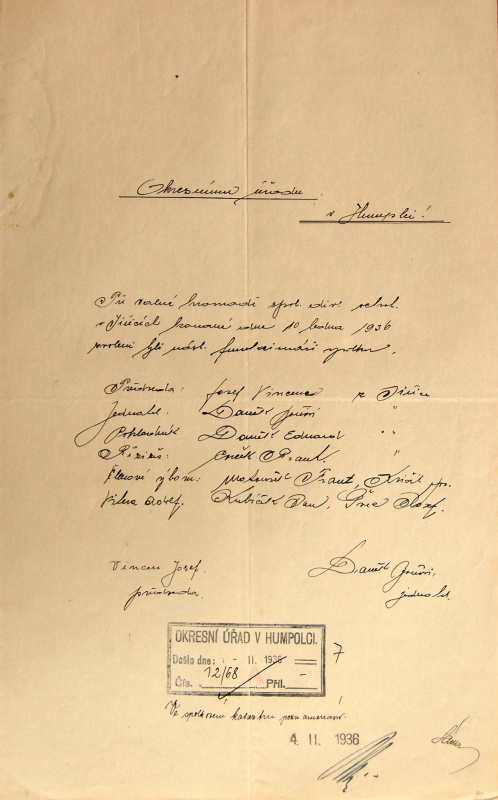 Okresnímu úřadu
v Humpolci!
Při valné hromadě spol. div. ochot.
v Jiřicích konané dne 10 ledna 1936
zvoleni byli násl. funkcionáři spolku.
Předseda: Josef Vincenc z Jiřic
Jednatel. Daněk Jouří "
Pokladník Daněk Eduard "
Režisér: Frant. "
Členové výboru: Matoušek Frant,
Adolf. Kubíček Jan, Josef.
Vincenc Josef. Daněk Jouří,
předseda. jednatel.
OKRESNÍ ÚŘAD V HUMPOLCI.
Došlo dne: - II. 1936 7
Čís. 12/68 Příl. -
Ve spolkovém katastru poznamenáno.
4. II. 1936